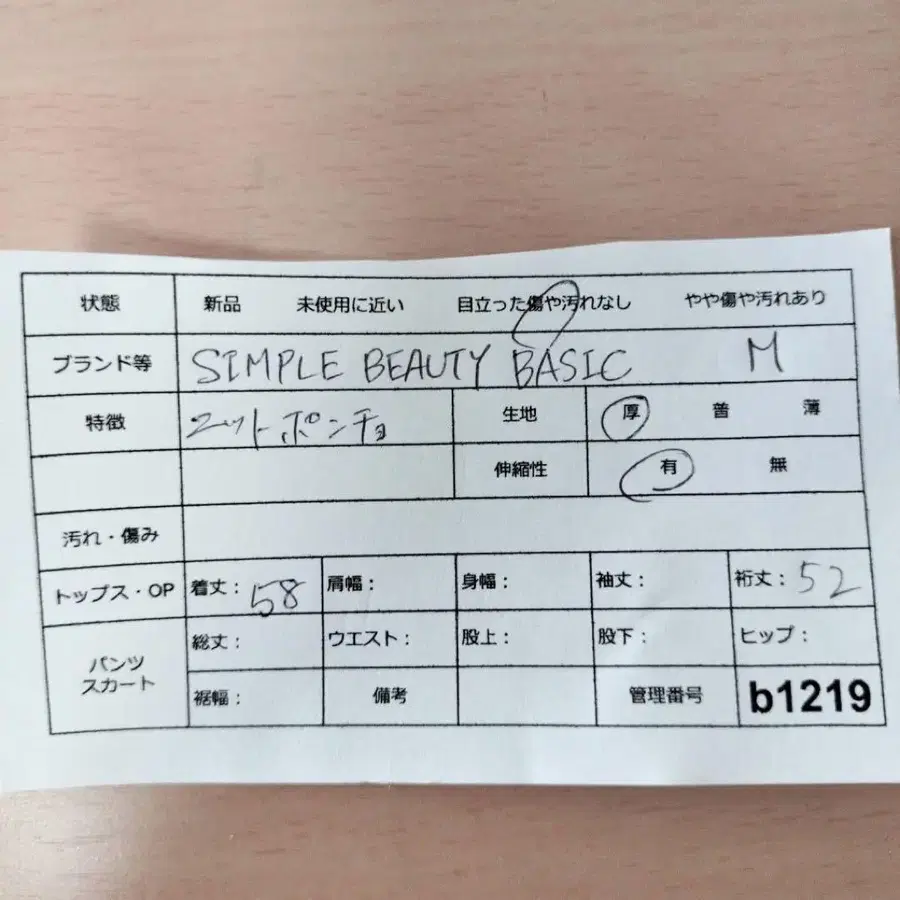 状態 新品 未使用に近い 目立った傷や汚れなし やや傷や汚れあり
ブランド等 SIMPLE BEAUTY BASIC M
特徴 ニットポンチョ 生地 厚 普 薄
伸縮性 有 無
汚れ・傷み
トップス・OP 着丈: 58 肩幅: 身幅: 袖丈: 裄丈: 52
パンツ スカート 総丈: ウエスト: 股上: 股下: ヒップ:
裾幅: 備考 管理番号 b1219